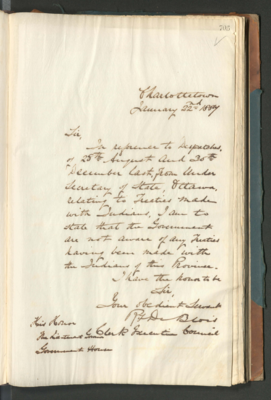 Charlottetown
January 22nd 1889
Sir,
In reference to
of 25th August and 20th
December last, from Under
Secretary of State, Ottawa,
relating to Treaties made
with Indians, I am to
state that the Government
are not aware of any Treaties
having been made with
the Indians of this Province.
I have the honor to be
Sir,
Your obedient Servant
Clerk Executive Council
His Honor
Government House